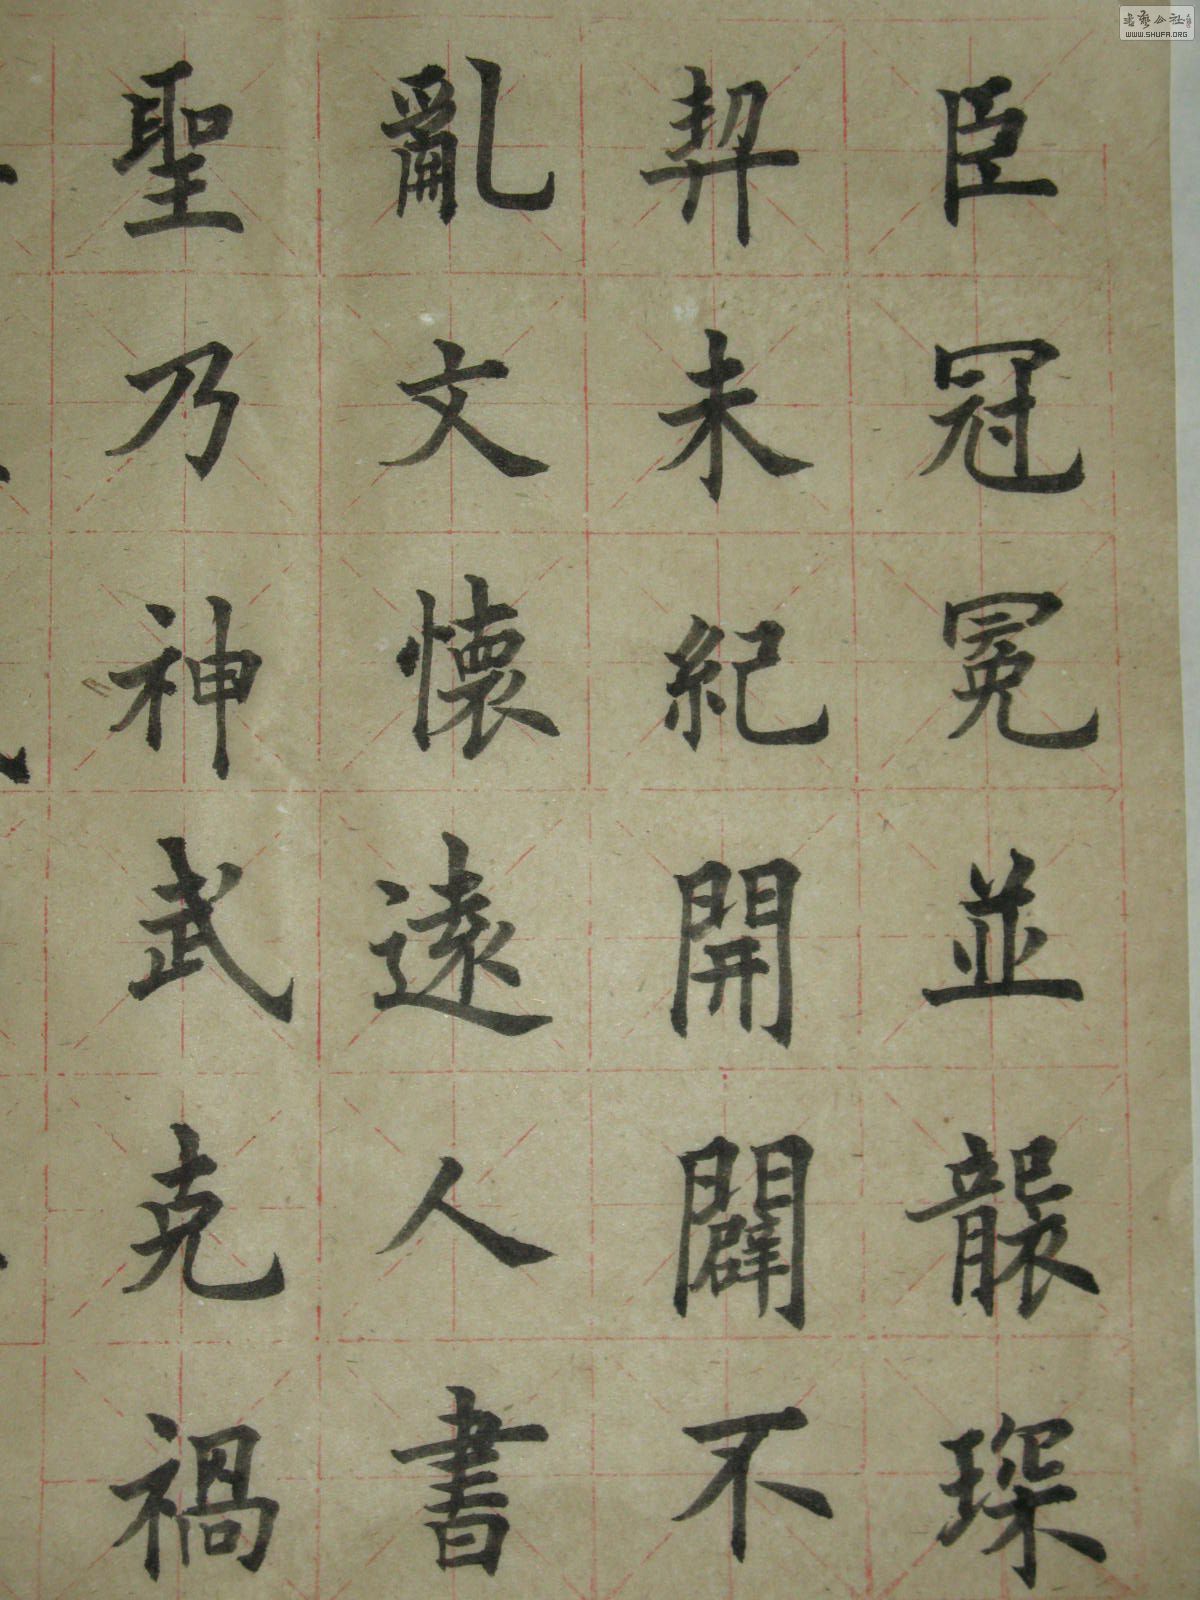 臣冠冕並襲琛
契未紀開闢不
亂文懷遠人書
聖乃神武克禍
WWW.SHUFA.ORG